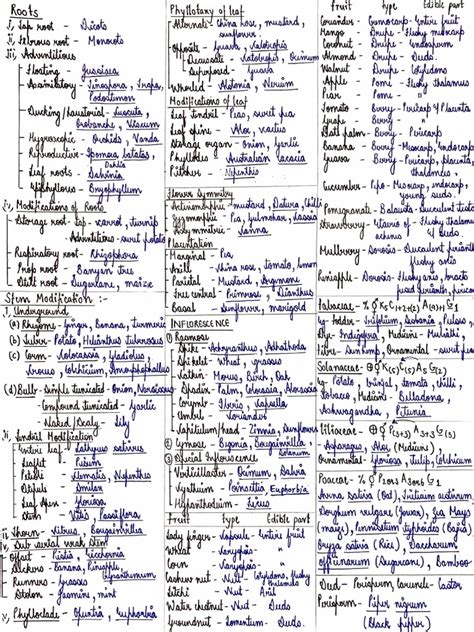 Roots
i, Tap root - Dicots
ii, Fibrous root - Monocots
iii, Adventitious
Floating - Jussiaea
Assimilatory - Tinospora, Trapa, Podostimon
Sucking/haustorial - Cuscuta, Orobanche, Viscum
Hygroscopic - Orchids, Vanda
Reproductive - Ipomea batatas, Dahlia
Leaf roots -
Epiphyllous - Bryophyllum
iv, Modifications of Roots
Storage root - Tap - carrot, turnip
Adventitious - sweet potato
Respiratory root - Rhizophora
Prop root - Banyan tree
Stilt root - Sugarcane, maize
Stem Modification :-
i, Underground
(a) Rhizome - Ginger, Banana, turmeric
(b) Tuber - Potato, Helianthus tuberosus
(c) Corm - Colocassia, Gladiolus, Crocus, Colchicum, Amorphophallus
(d) Bulb - Simple tunicated - Onion, Narcissus
Compound tunicated - Garlic
Naked/Scaly - Lily
ii, Aerial Modification
Entire leaf - Lathyrus sativus
Leaflet - Pisum
Petiole - Clematis, Nepenthes
Stipule - Smilax
Leaf Apex - Gloriosa
Stem - Vitis, Passiflora
iii, Thorn - Citrus, Bougainvillea
iv, Sub aerial weak stem
Offset - Pistia, Eicchornia
Suckers - Banana, Pineapple, Crysanthemum
Runners - Grasses
Stolon - Jasmine, mint
v, Phylloclade - Opuntia, Euphorbia
Phyllotaxy of leaf
Alternate - China rose, mustard, sunflower
Opposite - Guava, Calotropis
Decussate - Calotropis, Ocimum
Superposed - Guava
Whorled - Alstonia, Nerium
Modifications of leaf
Leaf tendril - Pea, sweet pea
Leaf spine - Aloe, cactus
Storage organ - Onion, garlic
Phyllode - Australian acacia
Pitcher - Nepenthes
Flower Symmetry
Actinomorphic - mustard, Datura, Chilli
Zygomorphic - Pea, gulmohar, Cassia
Asymmetric - Canna
Placentation
Marginal - Pea
Axile - China rose, tomato, lemon
Parietal - Mustard, Argemone
Free central - Primrose, Dianthus
Basal - Sunflower, marigold
INFLORESENCE
① Racemose
Spike - Achyranthus, Adhathoda
Spikelet - Wheat, grasses
Catkin - Morus, Birch, Oak
Spadix - Palm, Colocasia, Alocasia
Corymb - Iberis, Capsella
Umbel - Coriander
Capitulum/head - Zinnia, Sunflower
② Cymose - Begonia, Bougainvillea,
③ Special Inflorescence
Verticillaster - Ocimum, Salvia
Cyathium - Poinsettia, Euphorbia
Hypanthodium - Ficus
Fruit Type Edible part
Lady finger - Capsule - Entire fruit
Wheat - Caryopsis -
Corn - Caryopsis -
Cashew nut - Nut - Cotyledons, fleshy
Litchi - Nut - Aril
Water chestnut - Nut - Seed
Groundnut - Lomentum - Seed
Fruit Type Edible part
Coriander - Cremocarp - Entire fruit
Mango - Drupe - Fleshy mesocarp
Coconut - Drupe - endosperm
Almond - Drupe - Seed
Walnut - Drupe - Cotyledons
Apple - Pome - Fleshy thalamus
Pear - Pome
Tomato - Berry - Pericarp & Placenta
Grape - Berry
Date palm - Berry - Pericarp
Banana - Berry - Mesocarp, endocarp
Guava - Berry - Pericarp, placenta, thalamus
Cucumber - Pepo - Mesocarp, endocarp, young seeds
Pomegranate - Balausta - Succulent testa
Strawberry - Etaerio of - Succulent thalamus
Mulberry - Sorosis - Succulent perianth
Pineapple - Sorosis - Fleshy axis, bract, fused
Fabaceae - % ⚥ K(5) C1+2+(2) A(9)+1 G1
eg - Fodder - Trifolium, Sesbania, Pulses
Dye - Indigofera, Medicine - Mulaithi
Fibre - Sunhemp, Ornamental - sweet pea
Solanaceae - ⊕ ⚥ K(5) C(5) A5 G(2)
eg - Potato, brinjal, tomato, chilli,
tobacco, Medicine - Belladona,
Ashwagandha, Petunia
Liliaceae - ⊕ ⚥ P(3+3) A3+3 G(3)
Asparagus, Aloe (Medicine)
Ornamental - Gloriosa, Tulip, Colchicum
Poaceae - % ⚥ A3 G1
Avena sativa (Oat), Triticum aestivum,
Sorghum vulgare (Jowar), Zea Mays
(maize), Pennisetum typhoides (Bajra)
Oryza sativa (Rice), Saccharum
officinarum (Sugarcane), Bamboo
Seed - Perisperm, Caruncle - Castor
Perisperm - Piper nigrum
(Black pepper)